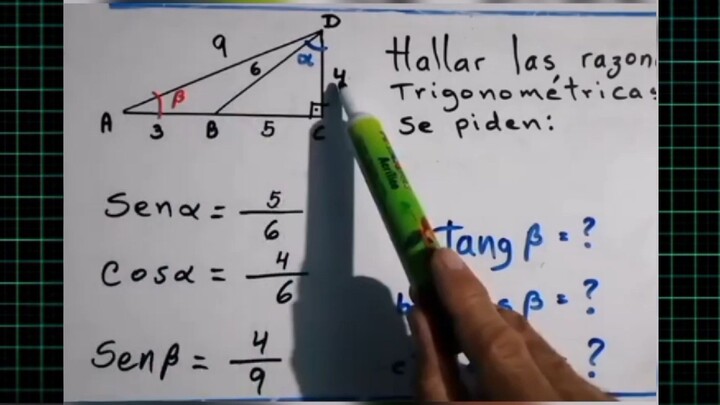 D
9
6
α
4
β
A
3
B
5
C
Hallar las
Trigonométricas
Se piden:
Acrilex
Senα = 5/6
Cosα = 4/6
Senβ = 4/9
tang β = ?
β = ?
?